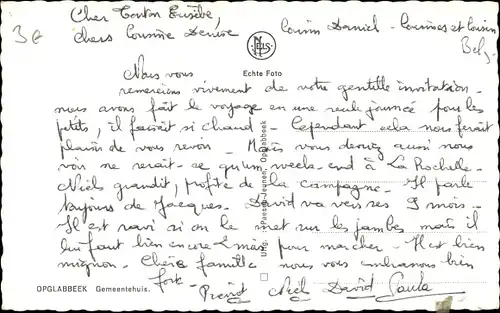 3€
Cher Tonton Eusèbe,
chers Cousine Denise Cousin Daniel - Cousines et Cousin
Nels
Nous vous
Echte Foto
remercions vivement de votre gentille invitation -
nous avons fait le voyage en une seule journée pour les
petits, il faisait si chaud - Cependant cela nous ferait
plaisir de vous revoir - Mais vous devriez aussi nous
voir ne serait-ce qu'un week-end à La Rochelle -
Niels grandit, profite de la campagne - Il parle
toujours de Jacques. David va vers ses 9 mois -
Il est ravi si on le met sur les jambes mais il
lui faut bien encore 2 mois pour marcher - Il est bien
mignon. Chère famille nous vous embrassons bien
fort -
David Paula
Uitg. Paesen-Jeunen, Opglabbeek
OPGLABBEEK Gemeentehuis.